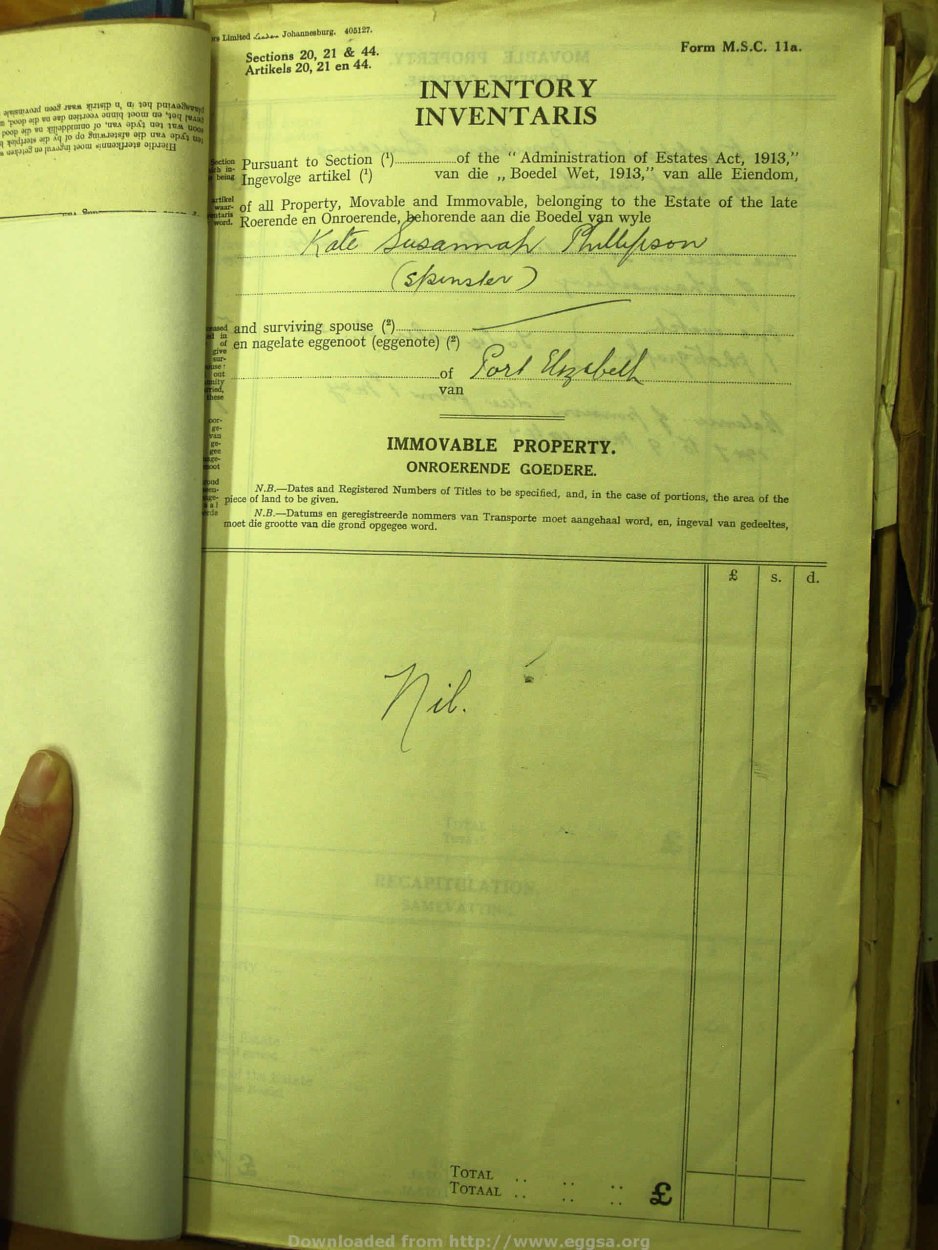 Limited London Johannesburg. 405127.
Sections 20, 21 & 44.
Artikels 20, 21 en 44.
Form M.S.C. 11a.
INVENTORY
INVENTARIS
Pursuant to Section (¹)....................of the “ Administration of Estates Act, 1913,”
Ingevolge artikel (¹) van die „ Boedel Wet, 1913,” van alle Eiendom,
of all Property, Movable and Immovable, belonging to the Estate of the late
Roerende en Onroerende, behorende aan die Boedel van wyle
Kate Susannah Phillipson
(Spinster)
and surviving spouse (²)
en nagelate eggenoot (eggenote) (²)
of Port Elizabeth
van
IMMOVABLE PROPERTY.
ONROERENDE GOEDERE.
N.B.—Dates and Registered Numbers of Titles to be specified, and, in the case of portions, the area of the
piece of land to be given.
N.B.—Datums en geregistreerde nommers van Transporte moet aangehaal word, en, ingeval van gedeeltes,
moet die grootte van die grond opgegee word.
£ s. d.
Nil.
TOTAL .. .. ..
TOTAAL .. .. .. £
Downloaded from http://www.eggsa.org